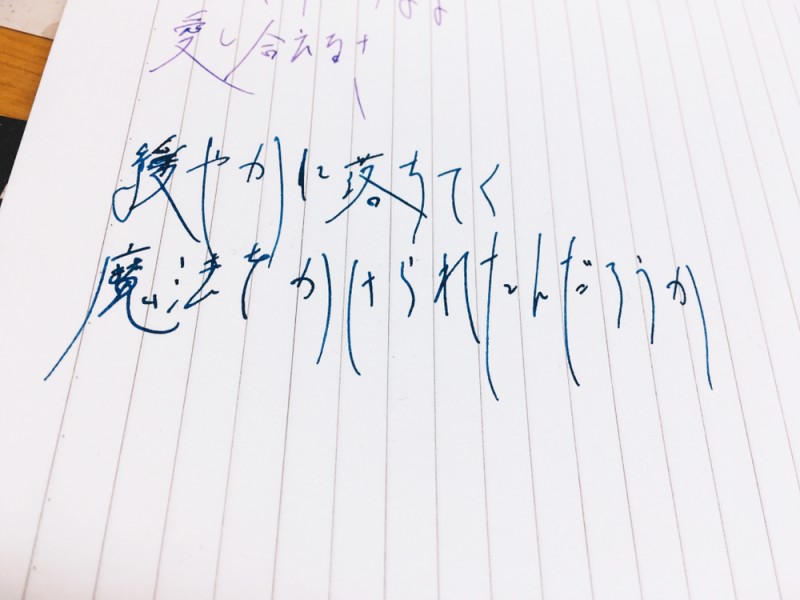 愛し合えるさ
緩やかに落ちてく
魔法をかけられたんだろうか